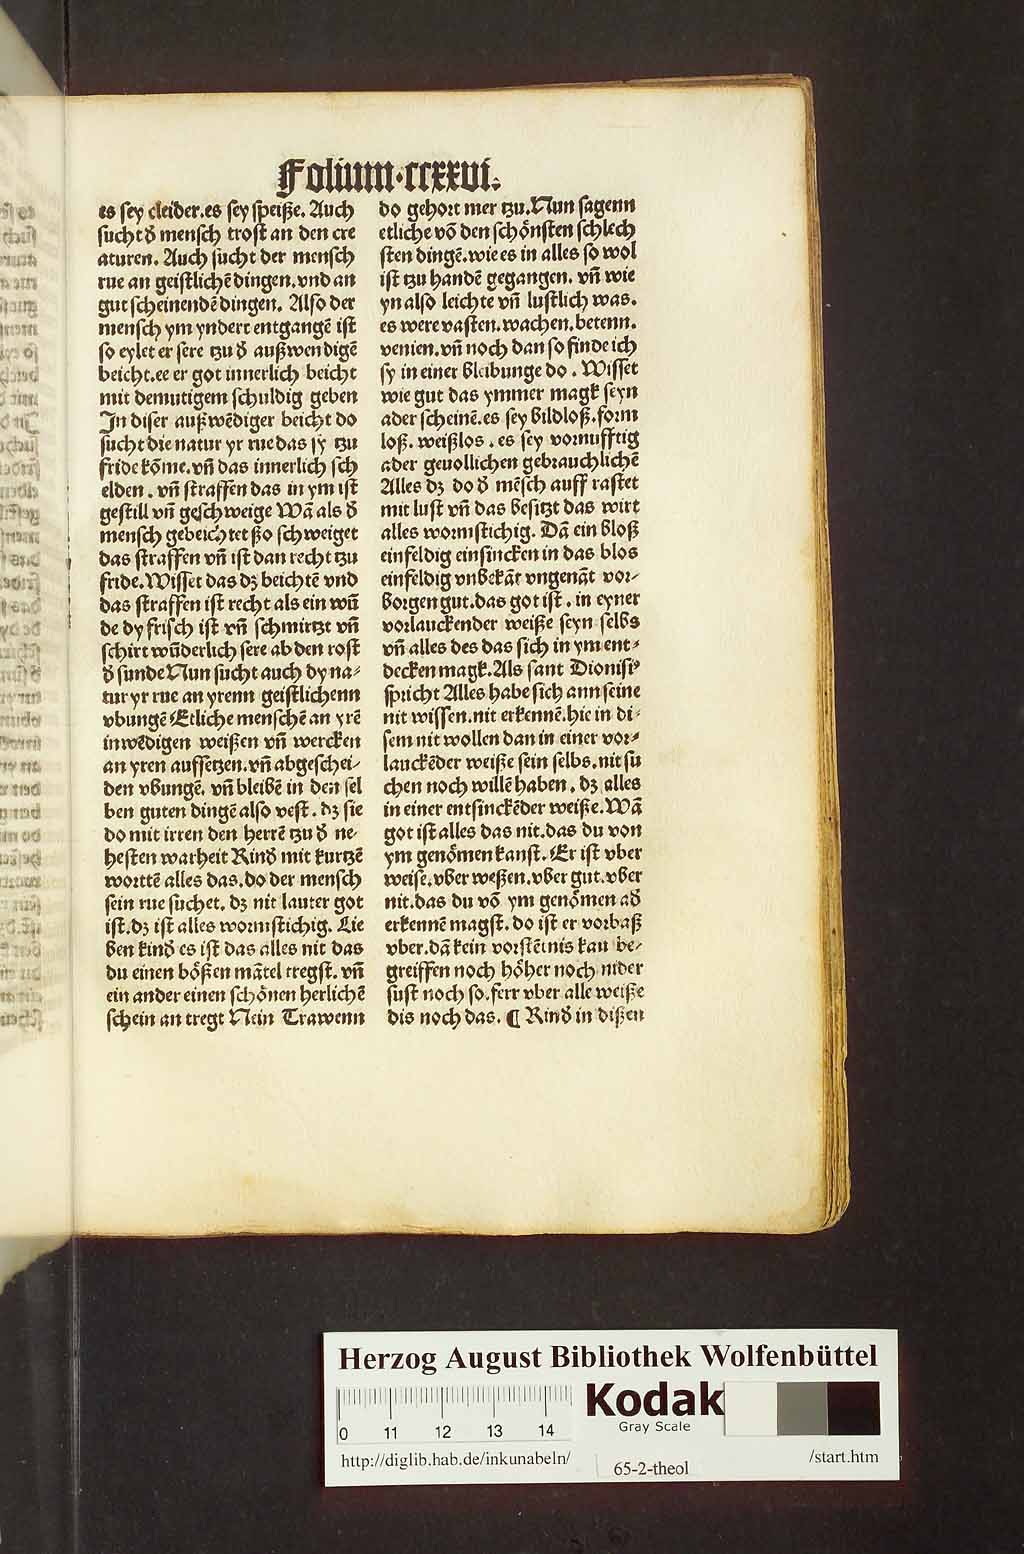 Folium·ccxxvi.
es sey cleider.es sey speiße. Auch
sucht d̕ mensch trost an den cre
aturen. Auch sucht der mensch
rue an geistlichē dingen.vnd an
gut scheinendē dingen. Also der
mensch ym yndert entgangē ist
so eylet er sere tzu d̕ außwendigē
beicht.ee er got innerlich beicht
mit demutigem schuldig geben
In diser außwēdiger beicht do
sucht die natur yr rue das sy tzu
fride kōme.vn̄ das innerlich sch
elden . vn̄ straffen das in ym ist
gestill vn̄ geschweige Wā als d̕
mensch gebeichtet ßo schweiget
das straffen vn̄ ist dan recht tzu
fride.Wisset das dz beichtē vnd
das straffen ist recht als ein wū
de dy frisch ist vn̄ schmirtzt vn̄
schirt wūderlich sere ab den rost
d̕ sunde Nun sucht auch dy na⸗
tur yr rue an yrenn geistlichenn
vbungē Etliche menschē an yrē
inwēdigen weißen vn̄ wercken
an yren auffsetzen.vn̄ abgeschei⸗
den vbungē. vn̄ bleibē in den sel
ben guten dingē also vest . dz sie
do mit irren den herrē tzu d̕ ne⸗
hesten warheit Kind̕ mit kurtzē
worttē alles das.do der mensch
sein rue suchet. dz nit lauter got
ist.dz ist alles wormstichig. Lie
ben kind̕ es ist das alles nit das
du einen bößen mātel tregst. vn̄
ein ander einen schönen herlichē
schein an tregt Nein Trawenn
do gehort mer tzu.Nun sagenn
etliche vō den schönsten schlech
sten dingē.wie es in alles so wol
ist tzu handē gegangen. vn̄ wie
yn also leichte vn̄ lustlich was.
es were vasten.wachen.betenn.
venien.vn̄ noch dan so finde ich
sy in einer bleibunge do . Wisset
wie gut das ymmer magk seyn
ader scheinē.es sey bildloß.form
loß. weißlos . es sey vornufftig
ader gevollichen gebrauchlichē
Alles dz do d̕ mēsch auff rastet
mit lust vn̄ das besitzt das wirt
alles wormstichig. Dā ein bloß
einfeldig einsincken in das blos
einfeldig vnbekāt vngenāt vor⸗
borgen gut.das got ist . in eyner
vorlauckender weiße seyn selbs
vn̄ alles des das sich in ym ent⸗
decken magk.Als sant Dionisiꝰ
spricht Alles habe sich ann seine
nit wissen.nit erkennē.hie in di⸗
sem nit wollen dan in einer vor⸗
lauckēder weiße sein selbs.nit su
chen noch willē haben . dz alles
in einer entsinckēder weiße.Wā
got ist alles das nit.das du von
ym genömen kanst. Er ist vber
weise.vber weßen.vber gut.vber
nit.das du vō ym genömen ad̕
erkennē magst. do ist er vorbaß
vber.dā kein vorstētnis kan be⸗
greiffen noch höher noch nider
sust noch so.ferr vber alle weiße
dis noch das. ¶ Kind̕ in dißen
Herzog August Bibliothek Wolfenbüttel
Kodak
Gray Scale
0 11 12 13 14
http://diglib.hab.de/inkunabeln/ 65-2-theol /start.htm